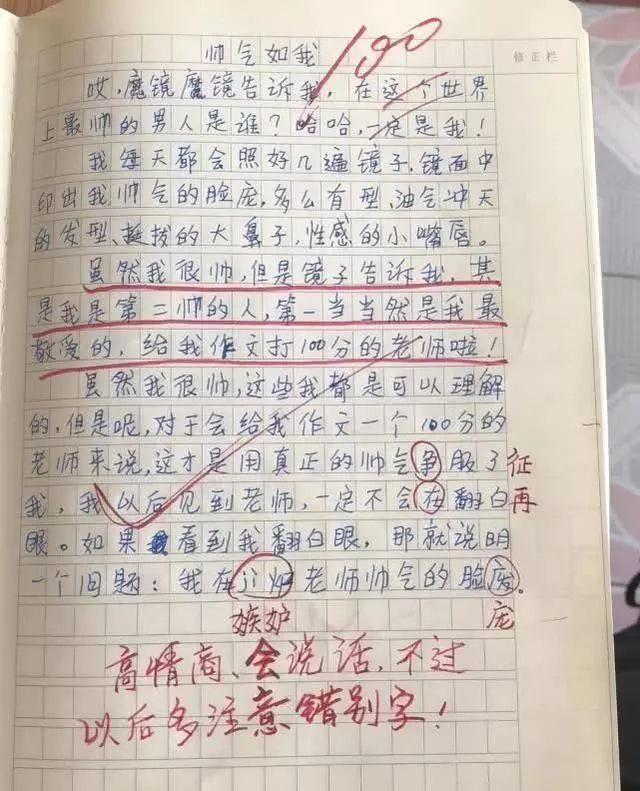 帅气如我
100
修正栏
哎，魔镜魔镜告诉我，在这个世界
上最帅的男人是谁？哈哈，一定是我！
我每天都会照好几遍镜子，镜面中
印出我帅气的脸庞，多么有型、油气冲天
的发型、挺拔的大鼻子，性感的小嘴唇。
虽然我很帅，但是镜子告诉我，其
是我是第二帅的人，第一当当然是我最
敬爱的，给我作文打100分的老师啦！
虽然我很帅，这些我都是可以理解
的，但是呢，对于会给我作文一个100分的
老师来说，这才是用真正的帅气争服了 征
我，我以后见到老师，一定不会在翻白 再
眼。如果看到我翻白眼，那就说明
一个问题：我在 老师帅气的脸
嫉妒 庞
高情商、会说话，不过
以后多注意错别字！